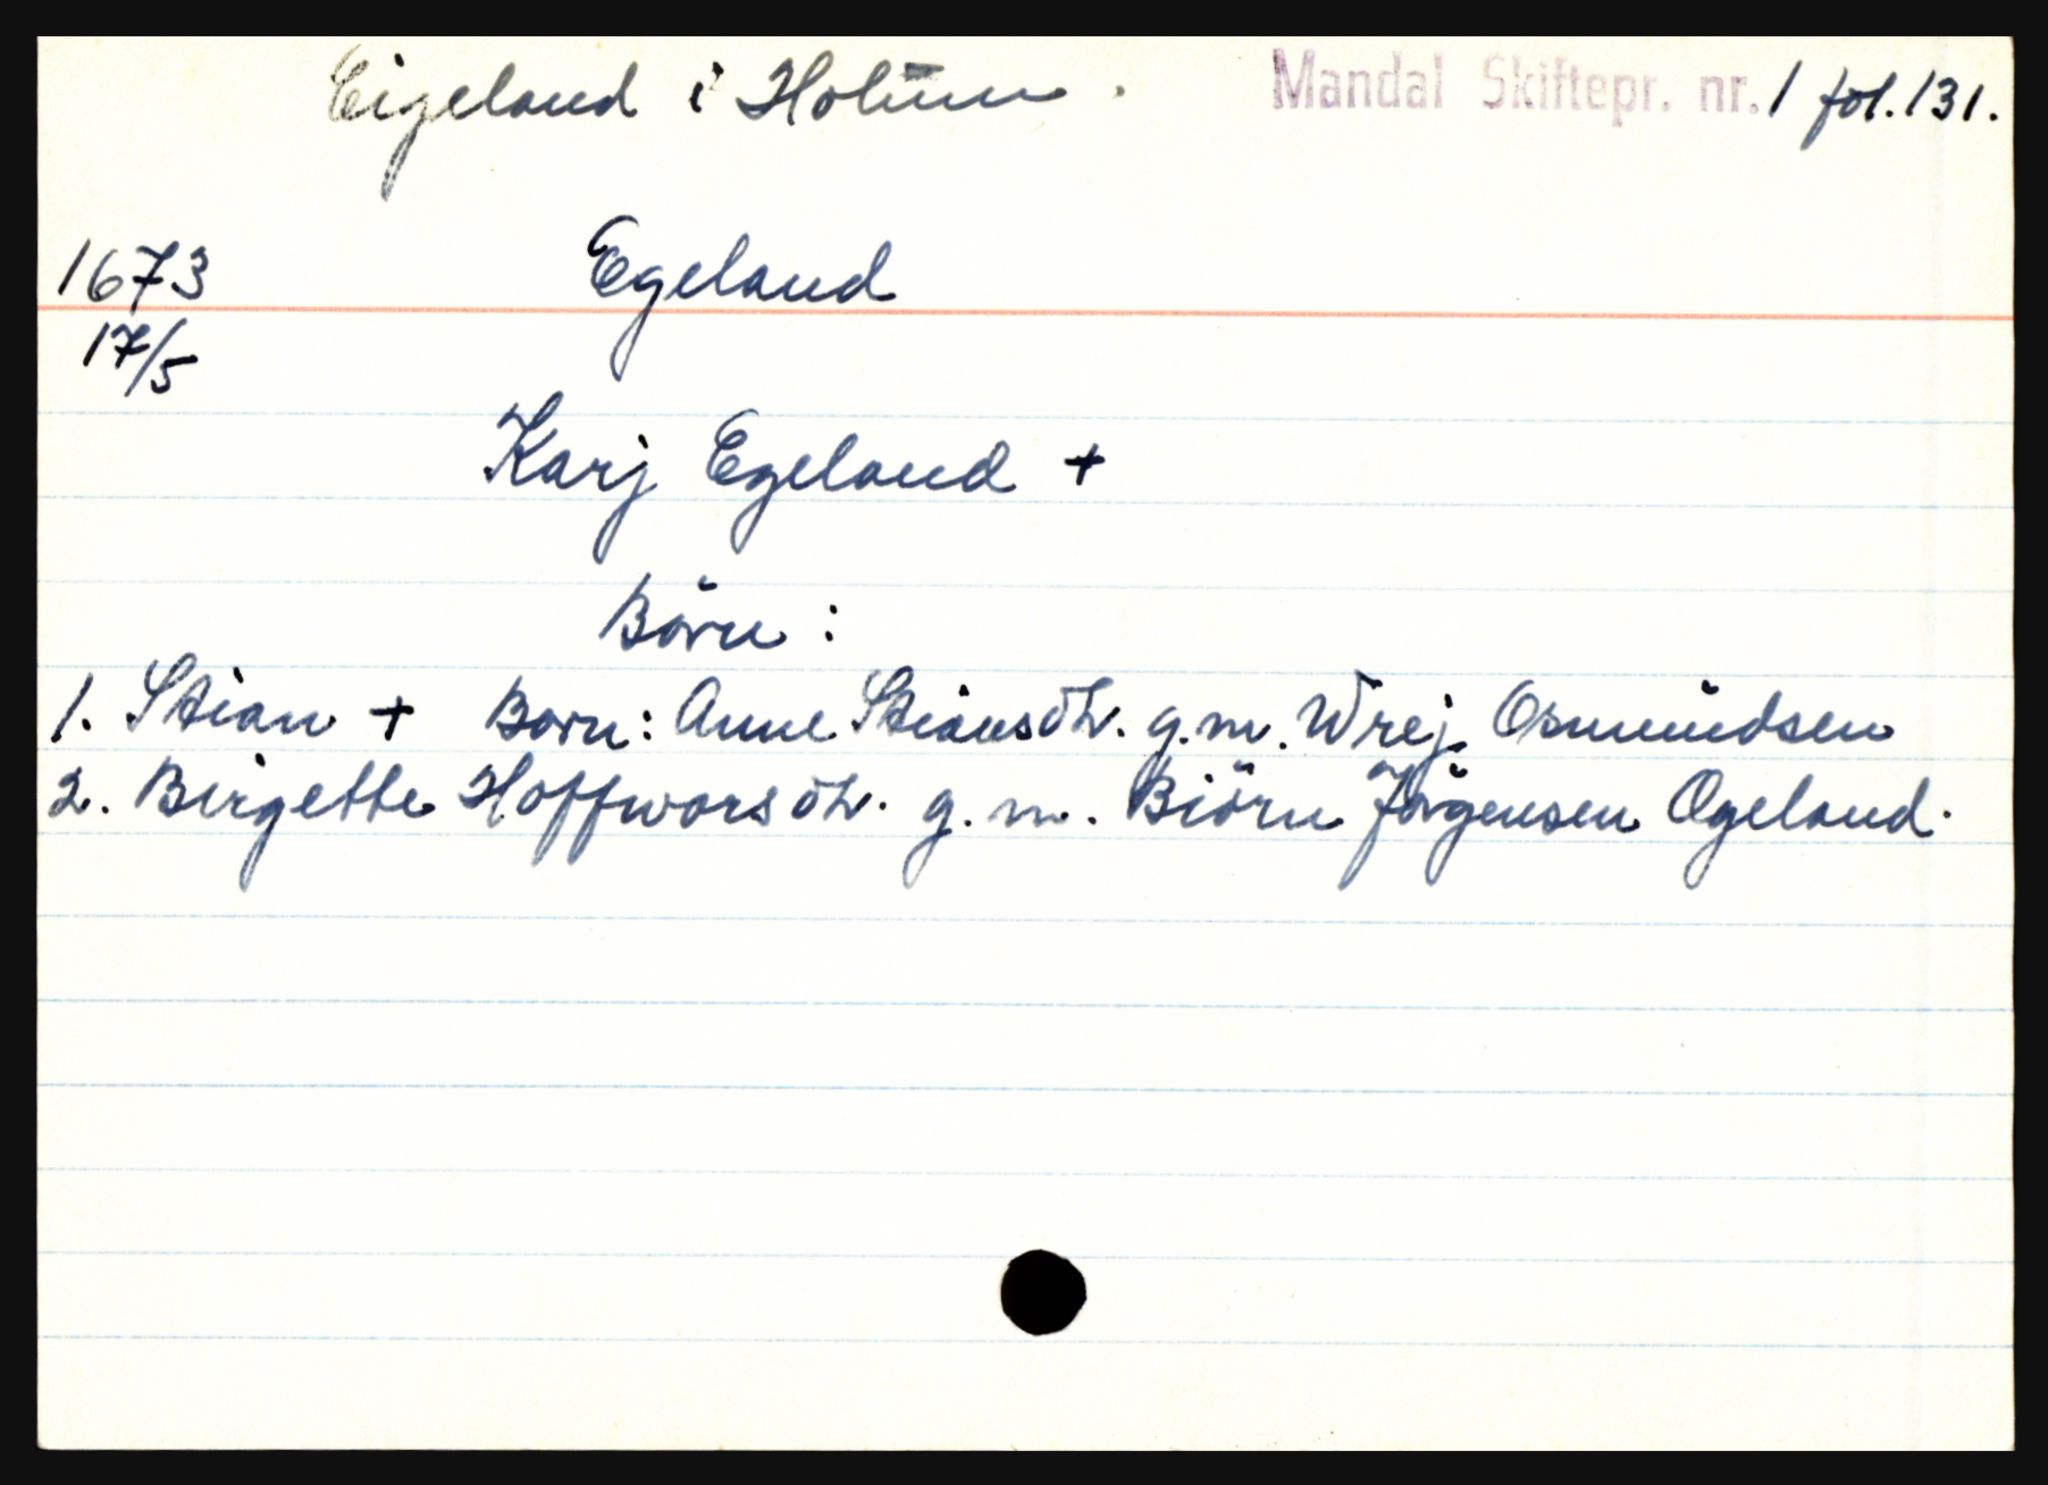 Eigeland i Holum. Mandal Skiftepr. nr. 1 fol. 131.
1673 Egeland
17/5
Karj Egeland +
Börn:
1. Stian + Barn: Anne Stiansdtr. g.m. Wrej Osmundsen
2. Birgette Hoffworsdtr. g.m. Biörn Jörgensen Ögeland.